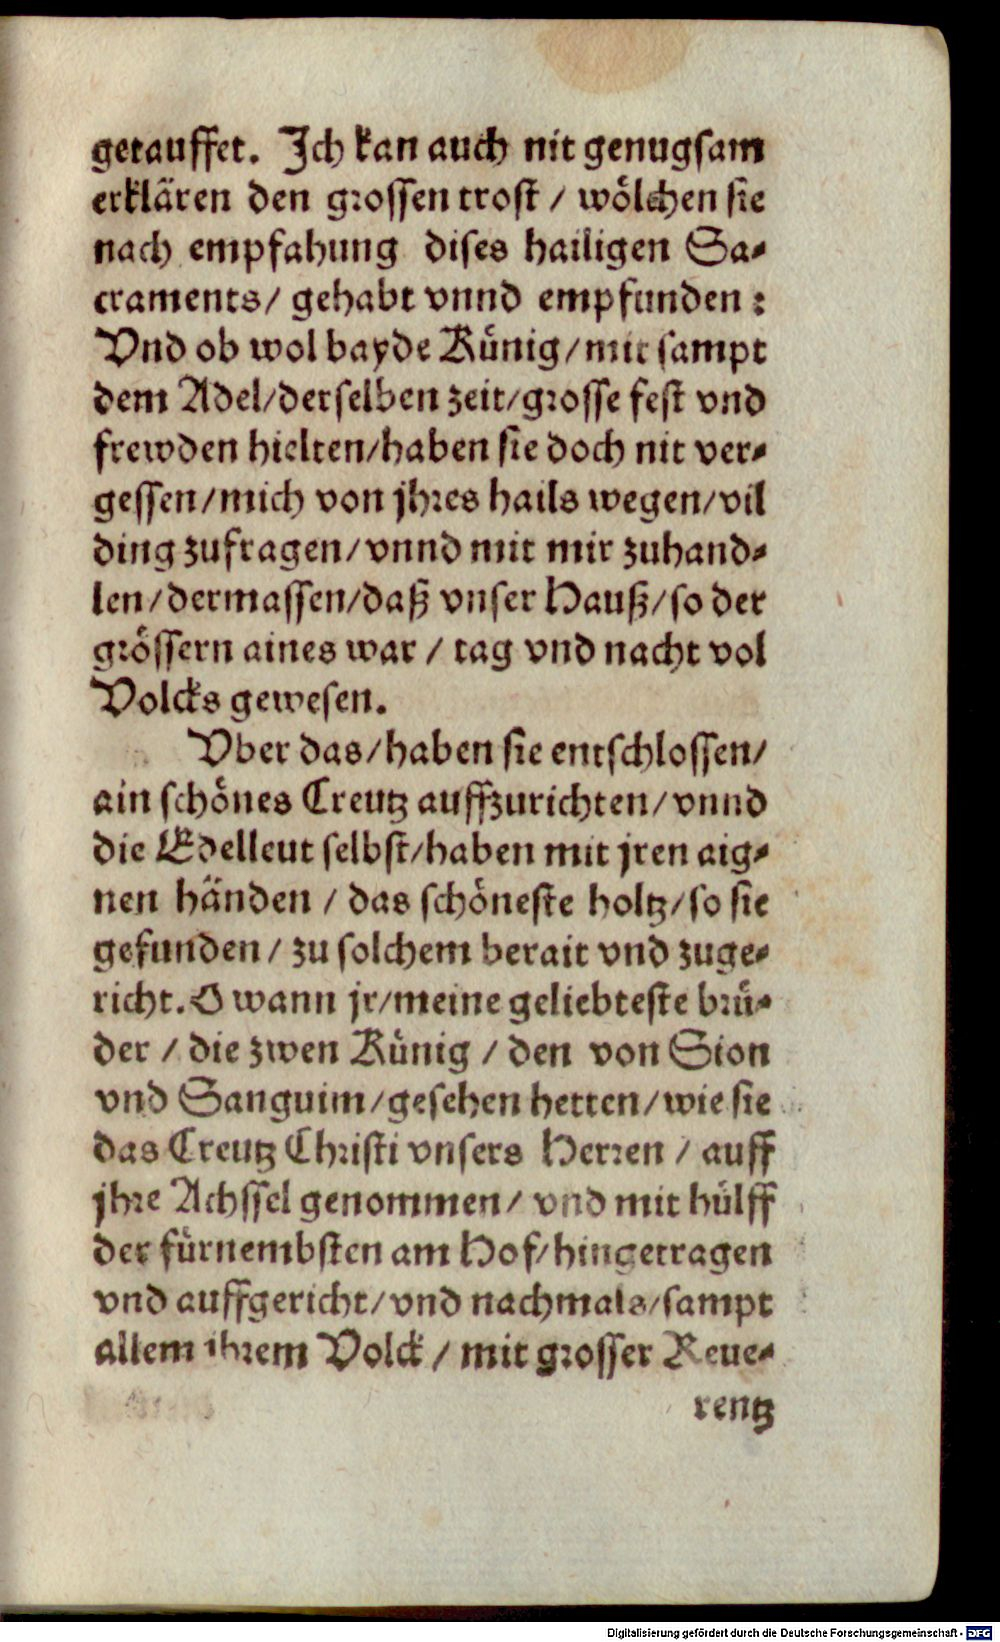 getauffet. Ich kan auch nit genugsam
erklären den grossen trost / wölchen sie
nach empfahung dises hailigen Sa-
craments/ gehabt vnnd empfunden:
Vnd ob wol bayde Künig/mit sampt
dem Adel/derselben zeit/grosse fest vnd
frewden hielten/haben sie doch nit ver-
gessen/mich von jhres hails wegen/vil
ding zufragen/vnnd mit mir zuhand-
len/dermassen/daß vnser Hauß/so der
grössern aines war / tag vnd nacht vol
Volcks gewesen.
Vber das/haben sie entschlossen/
ain schönes Creutz auffzurichten/vnnd
die Edelleut selbst/haben mit jren aig-
nen händen / das schöneste holtz/so sie
gefunden / zu solchem berait vnd zuge-
richt. O wann jr/meine geliebteste brü-
der / die zwen Künig / den von Sion
vnd Sanguim/gesehen hetten/wie sie
das Creutz Christi vnsers Herren / auff
jhre Achssel genommen/ vnd mit hülff
der fürnembsten am Hof/hingetragen
vnd auffgericht/vnd nachmals/sampt
allem ihrem Volck / mit grosser Reue-
rentz
Digitalisierung gefördert durch die Deutsche Forschungsgemeinschaft - DFG